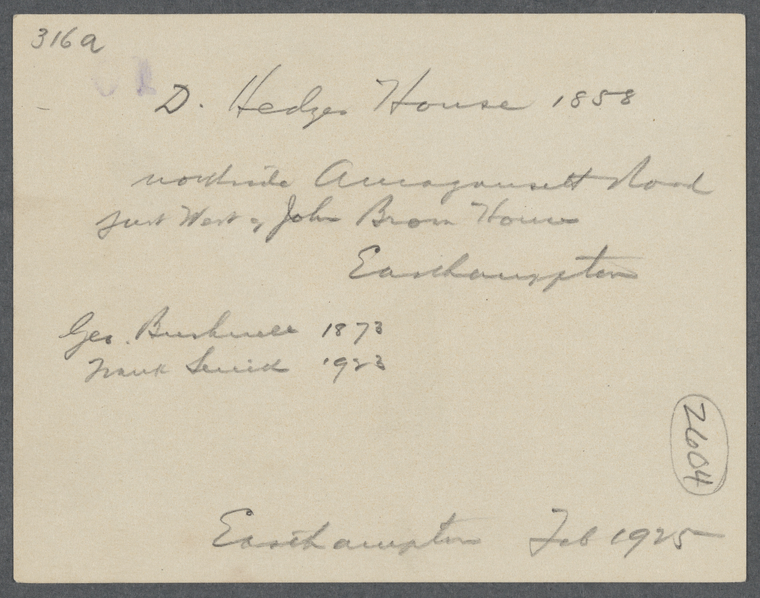 316a
D. Hedges House 1858
northside Amagansett Road
just West of John Brown House
Easthampton
Geo. Bushnell 1873
Frank 1923
2604
Easthampton Feb 1925